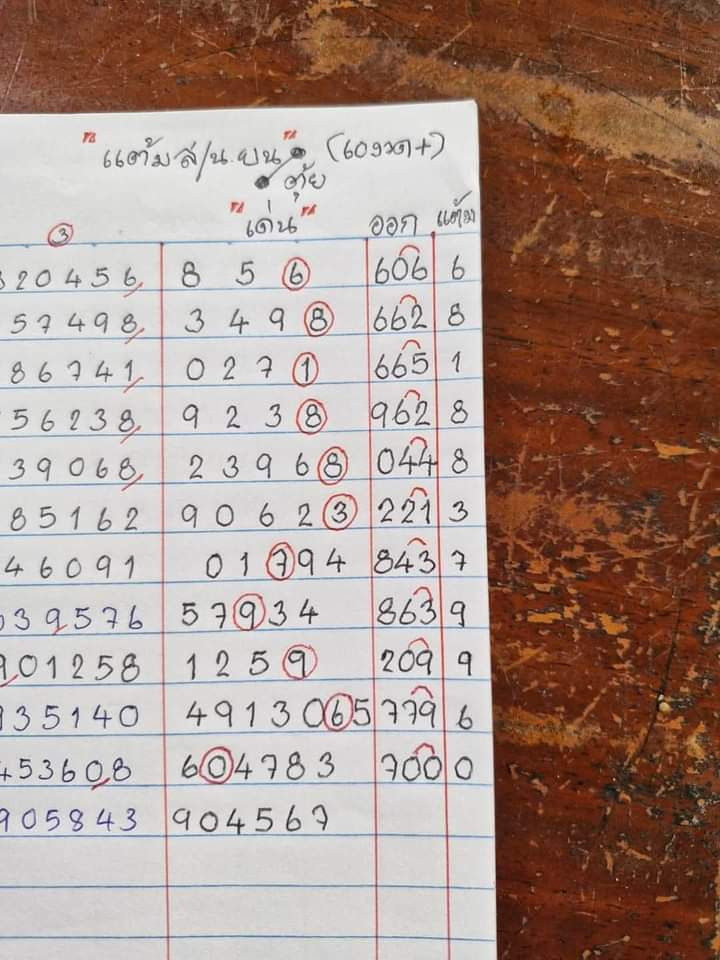 "แต้ม ส/น.ยน" (เองวด+)
ตุ้ย
3 "เด่น" ออก แต้ม
320456 8 5 6 606 6
57498 3 4 9 8 662 8
86741 0 2 7 1 665 1
56238 9 2 3 8 962 8
39068 2 3 9 6 8 044 8
85162 9 0 6 2 3 221 3
46091 0 1 7 9 4 843 7
039576 5 7 9 3 4 863 9
901258 1 2 5 9 209 9
935140 4 9 1 3 0 6 5 779 6
453608 6 0 4 7 8 3 700 0
905843 9 0 4 5 6 7